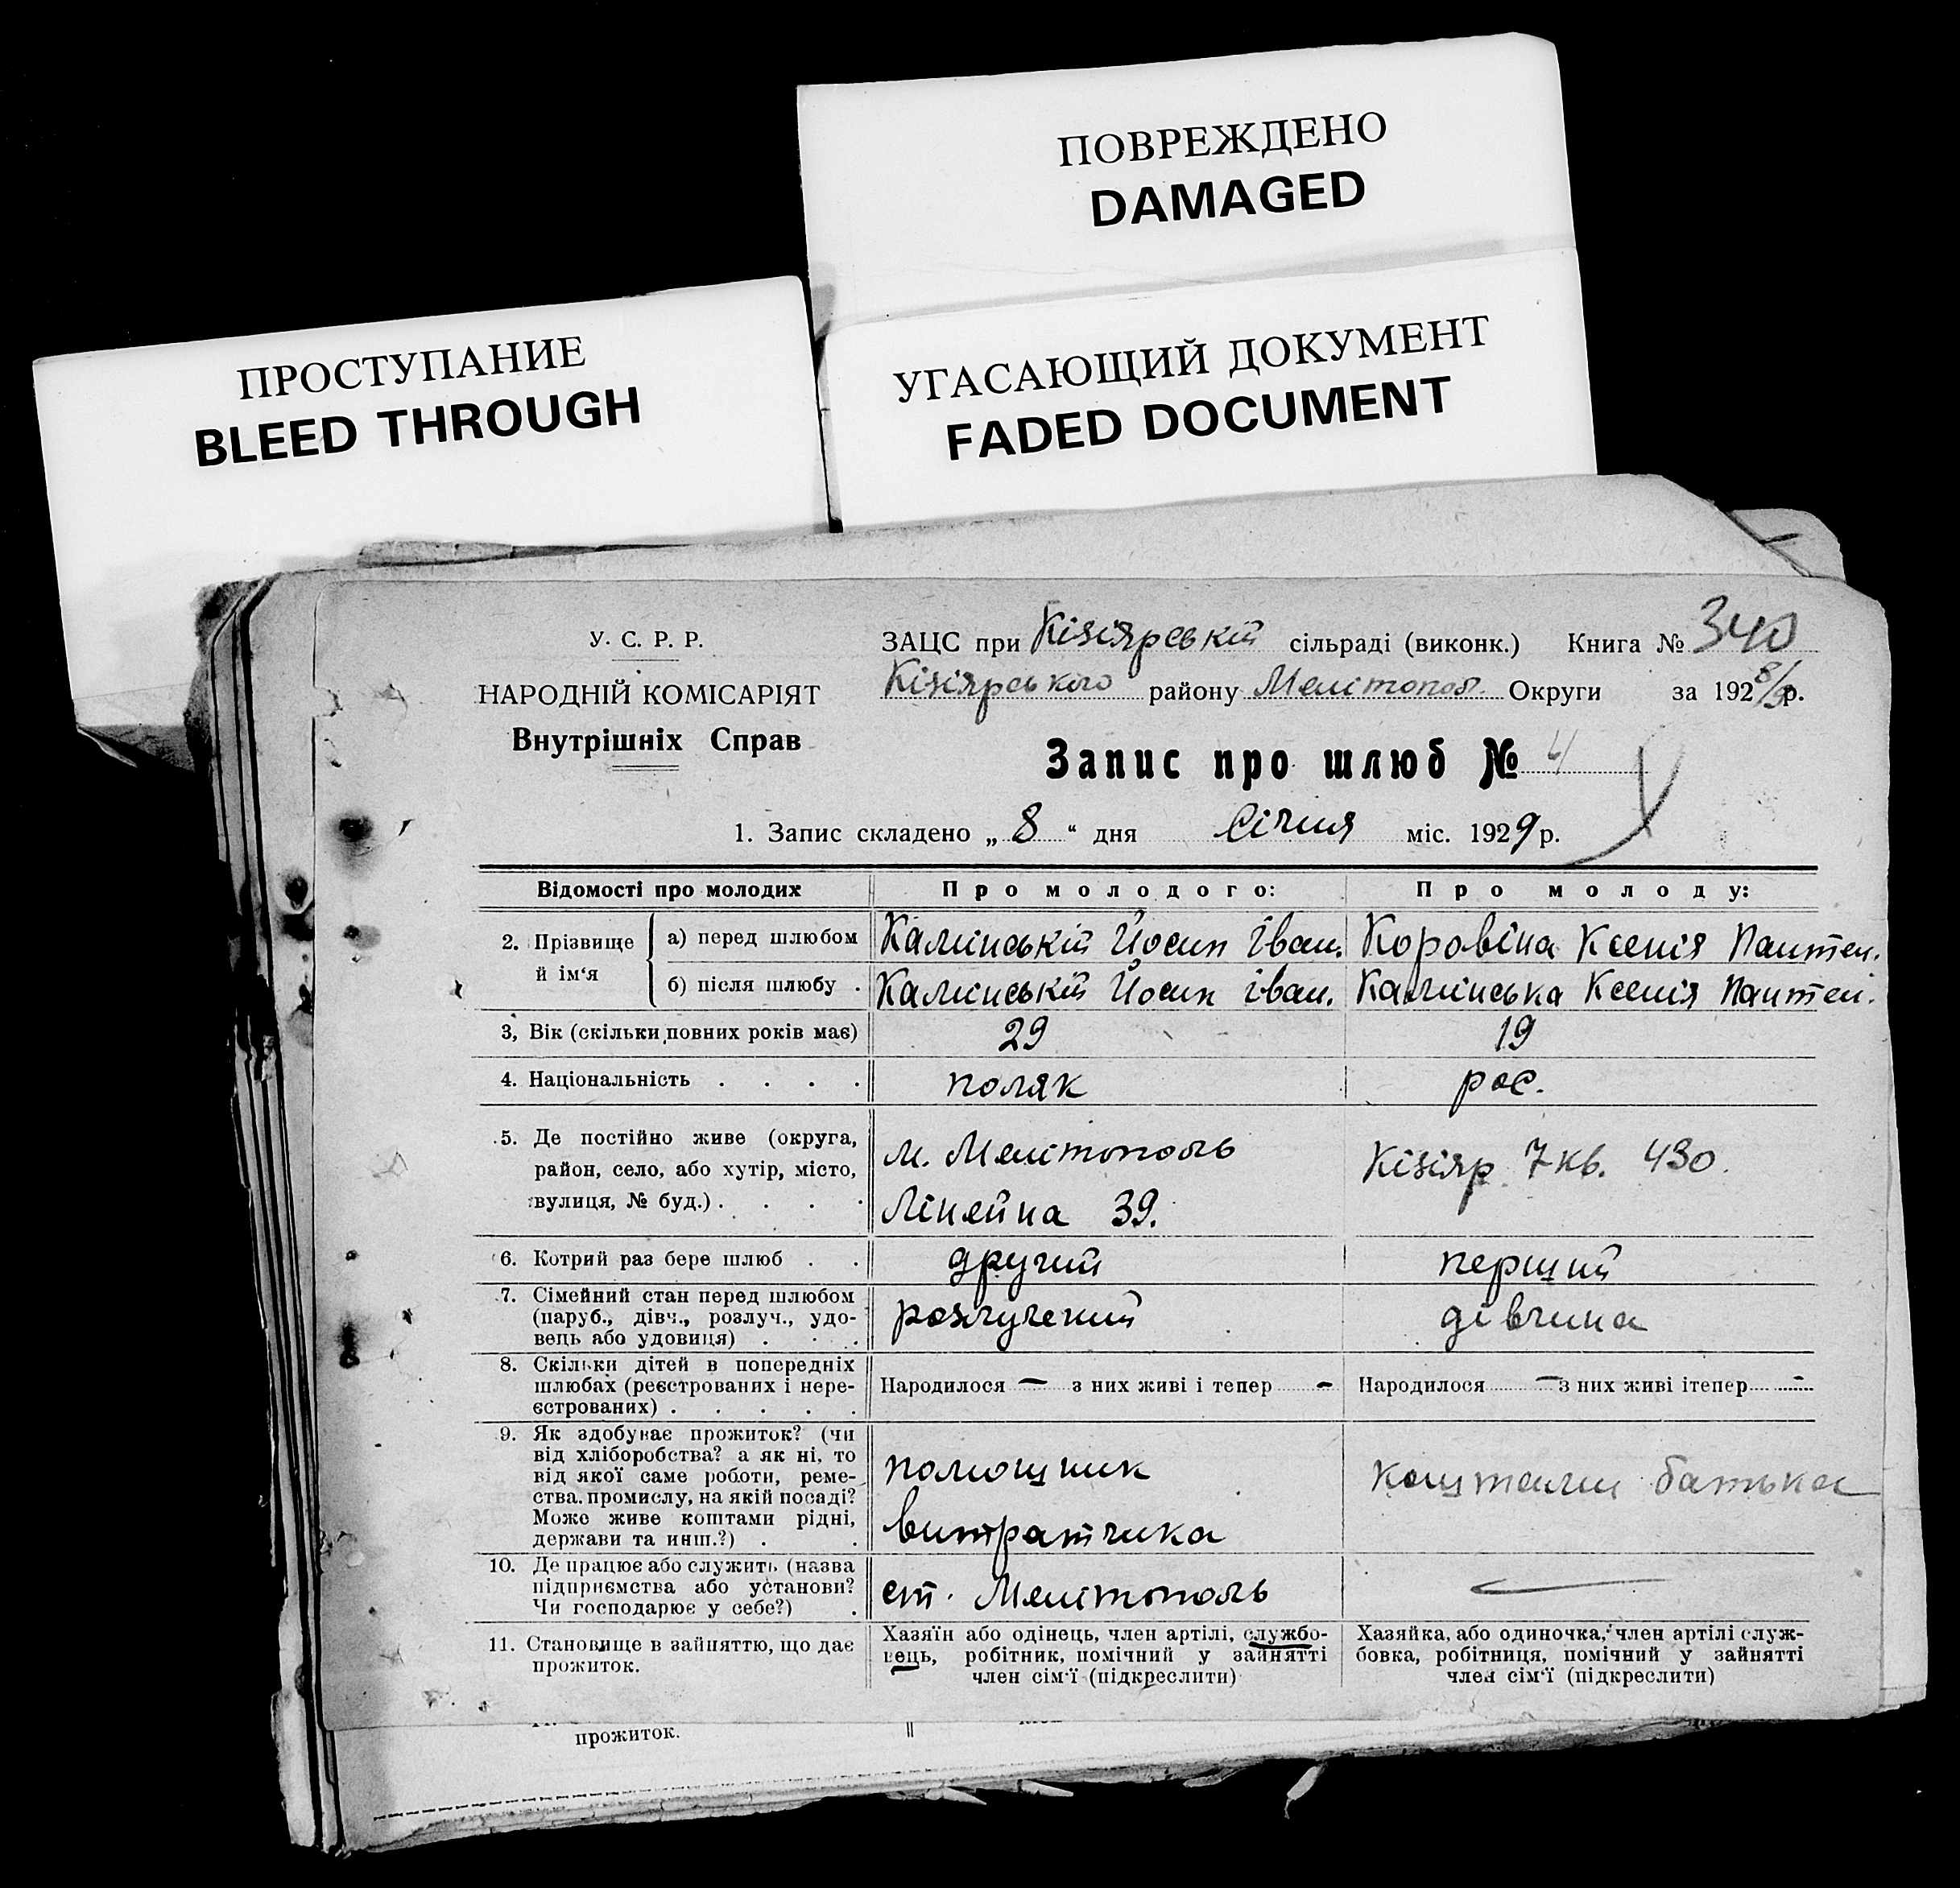 ПОВРЕЖДЕНО
DAMAGED
ПРОСТУПАНИЕ
BLEED THROUGH
УГАСАЮЩИЙ ДОКУМЕНТ
FADED DOCUMENT
У. С. Р. Р.
НАРОДНІЙ КОМІСАРІЯТ
Внутрішніх Справ
ЗАЦС при Кізіярській сільраді (виконк.) Книга № 340
Кізіярського району Мелітопол. Округи за 1928/9р.
Запис про шлюб № 4
1. Запис складено „ 8 “ дня Січня міс. 1929 р.
Відомості про молодих Про молодого: Про молоду:
2. Прізвище й ім‘я
а) перед шлюбом Камінській Йосип Іван. Коровіна Ксенія Пантел.
б) після шлюбу . Камінській Йосип Іван. Камінська Ксенія Пантел.
3, Вік (скільки повних років має) 29 19
4. Національність . . . . поляк рос.
5. Де постійно живе (округа,
район, село, або хутір, місто,
вулиця, № буд.) . . . .
м. Мелітополь
Лінейна 39.
Кізіяр 7 кв. 430.
6. Котрий раз бере шлюб . . другий перший
7. Сімейний стан перед шлюбом
(паруб., дівч., розлуч., удо-
вець або удовиця) . . .
розлучений дівчина
8. Скільки дітей в попередніх
шлюбах (реєстрованих і нере-
єстрованих) . . . . .
Народилося — з них живі і тепер — Народилося — з них живі ітепер —
9. Як здобуває прожиток? (чи
від хліборобства? а як ні, то
від якої саме роботи, реме-
ства. промислу, на якій посаді?
Може живе коштами рідні,
держави та инш.?) . .
помощник
витратчика
коштами батька
10. Де працює або служить (назва
підприємства або установи?
Чи господарює у себе?) .
ст. Мелітополь —
11. Становище в зайняттю, що дає
прожиток.
Хазяїн або одінець, член артілі, службо-
вець, робітник, помічний у зайнятті
член сім‘ї (підкреслити)
Хазяйка, або одиночка, член артілі служ-
бовка, робітниця, помічний у зайнятті
член сім‘ї (підкреслити)
прожиток.